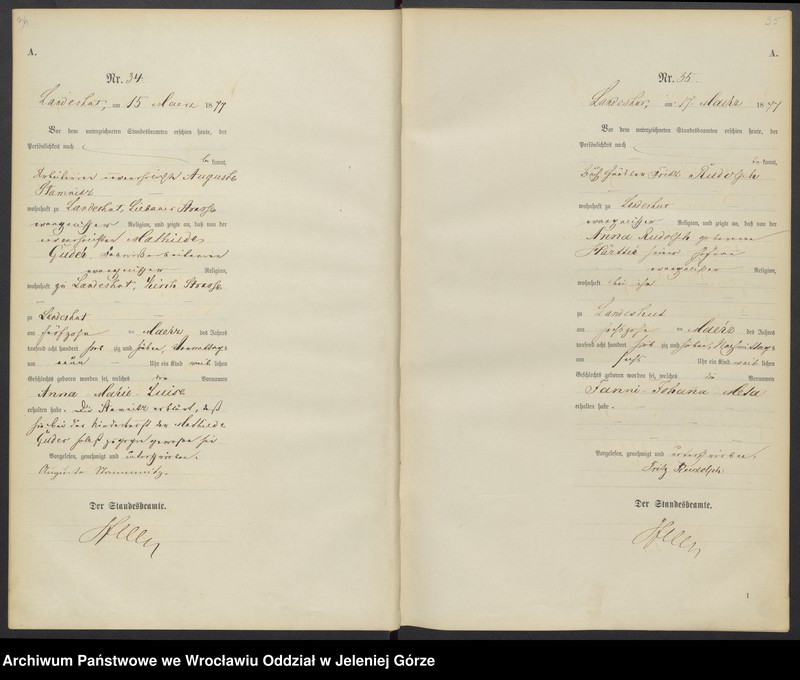 A.
Nr. 34
Landeshut, am 15 Maerz 1877
Vor dem unterzeichneten Standesbeamten erschien heute, der
Persönlichkeit nach
be kannt,
Auguste
wohnhaft zu Landeshut,
evangelischer Religion, und zeigte an, daß von der
unverehelichten Mathilde
Guder,
evangelischer Religion,
wohnhaft zu Landeshut,
zu Landeshut
am fünfzehn ten Maerz des Jahres
tausend acht hundert sieb zig und sieben, Vormittags
um neun Uhr ein Kind weib lichen
Geschlechts geboren worden sei, welches die Vornamen
Anna Marie Luise
erhalten habe. Die erklärt, daß
sie bei der Niederkunft der Mathilde
Guder selbst zugegen gewesen sei
Vorgelesen, genehmigt und unterschrieben.
Auguste
Der Standesbeamte.
35
A.
Nr. 35.
Landeshut, am 17. Maerz 1877
Vor dem unterzeichneten Standesbeamten erschien heute, der
Persönlichkeit nach
be kannt,
Rudolph
wohnhaft zu Landeshut
evangelischer Religion, und zeigte an, daß von der
Anna Rudolph geborene
seiner Ehefrau
evangelischer Religion,
wohnhaft bei ihm
zu Landeshut
am sechszehn ten Maerz des Jahres
tausend acht hundert sieb zig und sieben, Nachmittags
um sechs Uhr ein Kind weib lichen
Geschlechts geboren worden sei, welches die Vornamen
Fanni Johana Meta
erhalten habe.
Vorgelesen, genehmigt und unterschrieben.
Fritz Rudolph
Der Standesbeamte.
1
Archiwum Państwowe we Wrocławiu Oddział w Jeleniej Górze